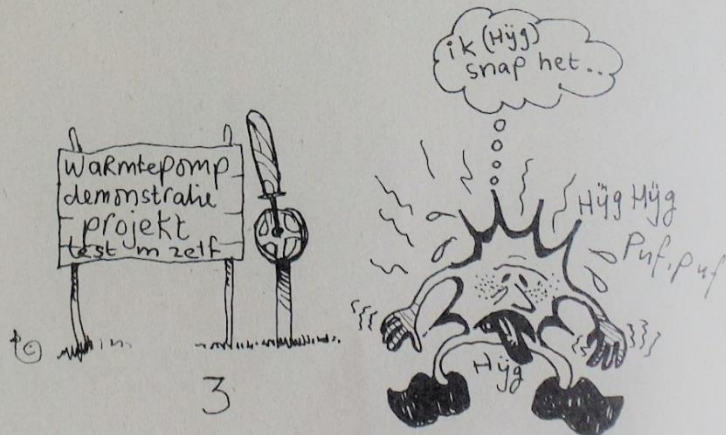 ik (Hÿg)
snap het...
warmtepomp
demonstratie
projekt
test m zelf
Hÿg Hÿg
Puf, puf
Hÿg
3